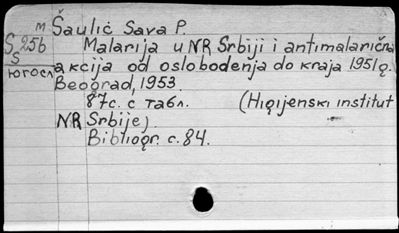 м Šaulić Sava P.
S 256 Malarija u NR Srbiji i antimalarična
S akcija od oslobođenja do kraja 1951 g.
югосл Beograd, 1953.
87 с. с табл. (Higijenski institut
NR Srbije)
Bibliogr. с. 84.